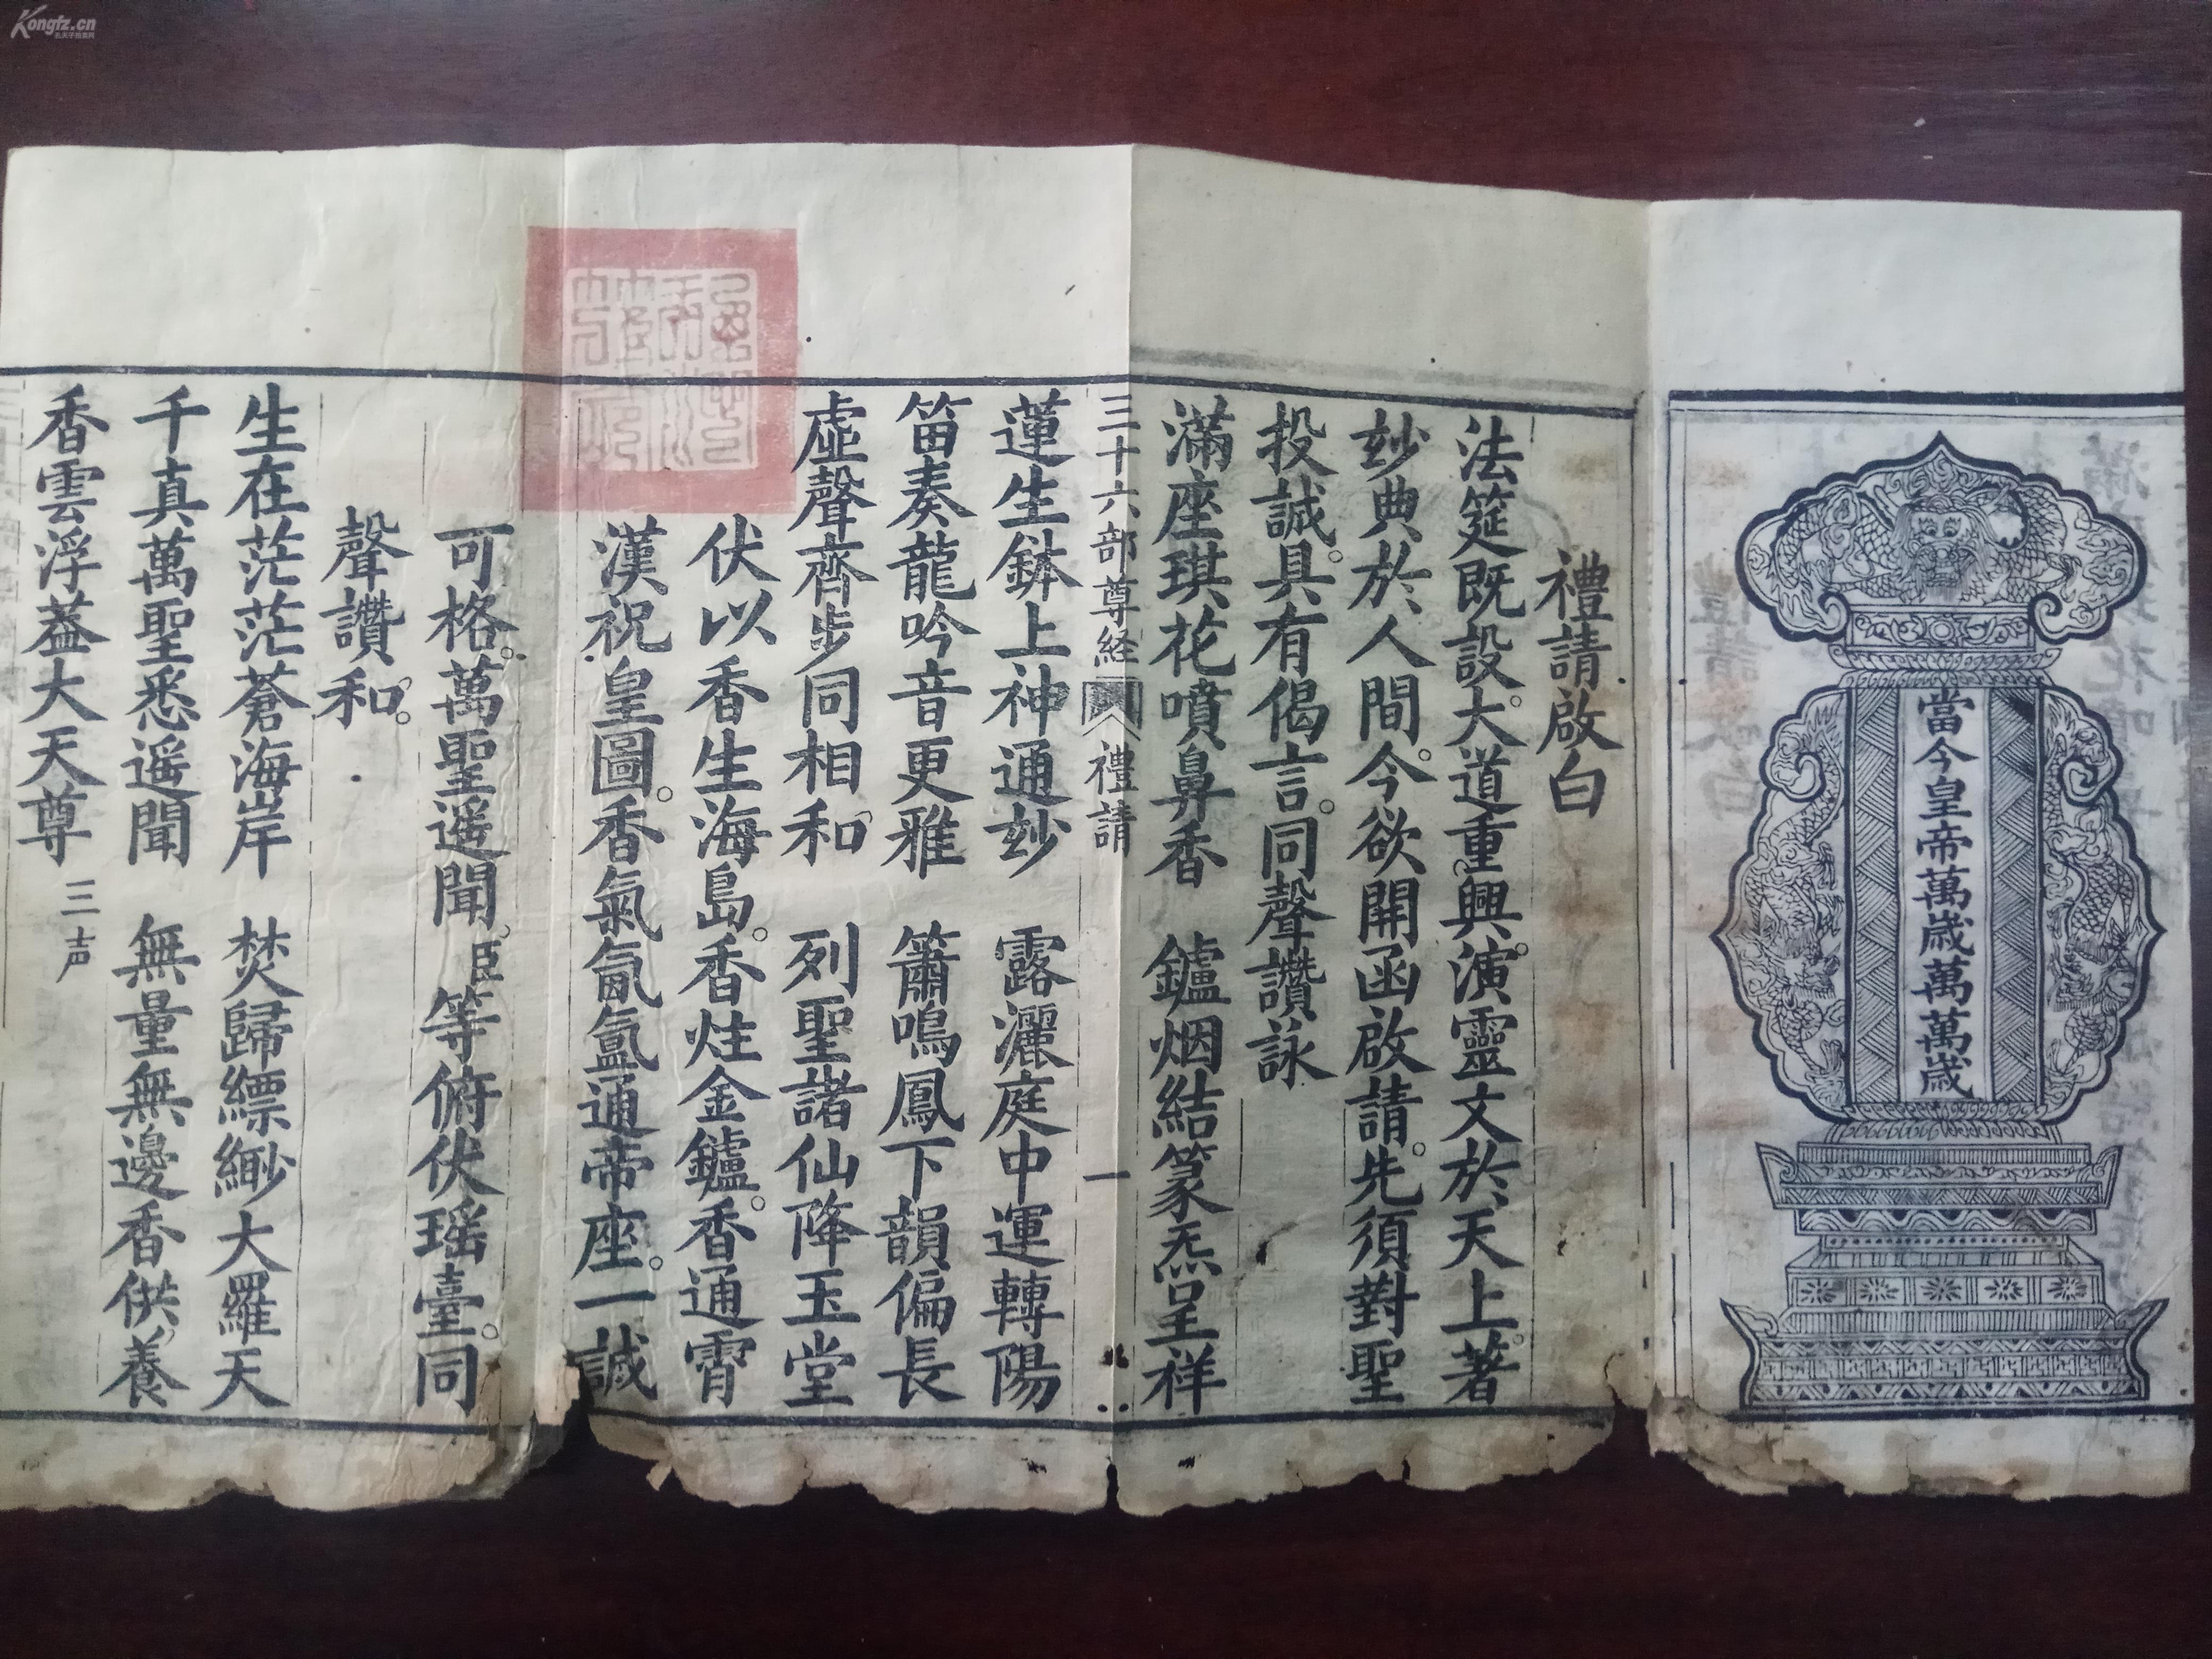 當今皇帝萬歲萬萬歲
禮請啟白
法筵既設。大道重興。演靈文於天上。著
玅典於人間。今欲開函啟請。先須對聖
投誠。具有偈言。同聲讚詠
滿座琪花噴鼻香　鑪烟結篆炁呈祥
三十六部尊経　禮請　一
蓮生鉢上神通玅　露灑庭中運轉陽
笛奏龍吟音更雅　簫鳴鳳下韻偏長
虛聲齊步同相和　列聖諸仙降玉堂
伏以香生海島。香炷金鑪。香通霄
漢祝皇圖。香氣氤氳通帝座。一誠
可格。萬聖遥聞。臣等俯伏瑶臺。同
聲讚和。
生在茫茫蒼海岸　焚歸縹緲大羅天
千真萬聖悉遥聞　無量無邊香供養
香雲浮蓋大天尊　三声
Kongfz.cn